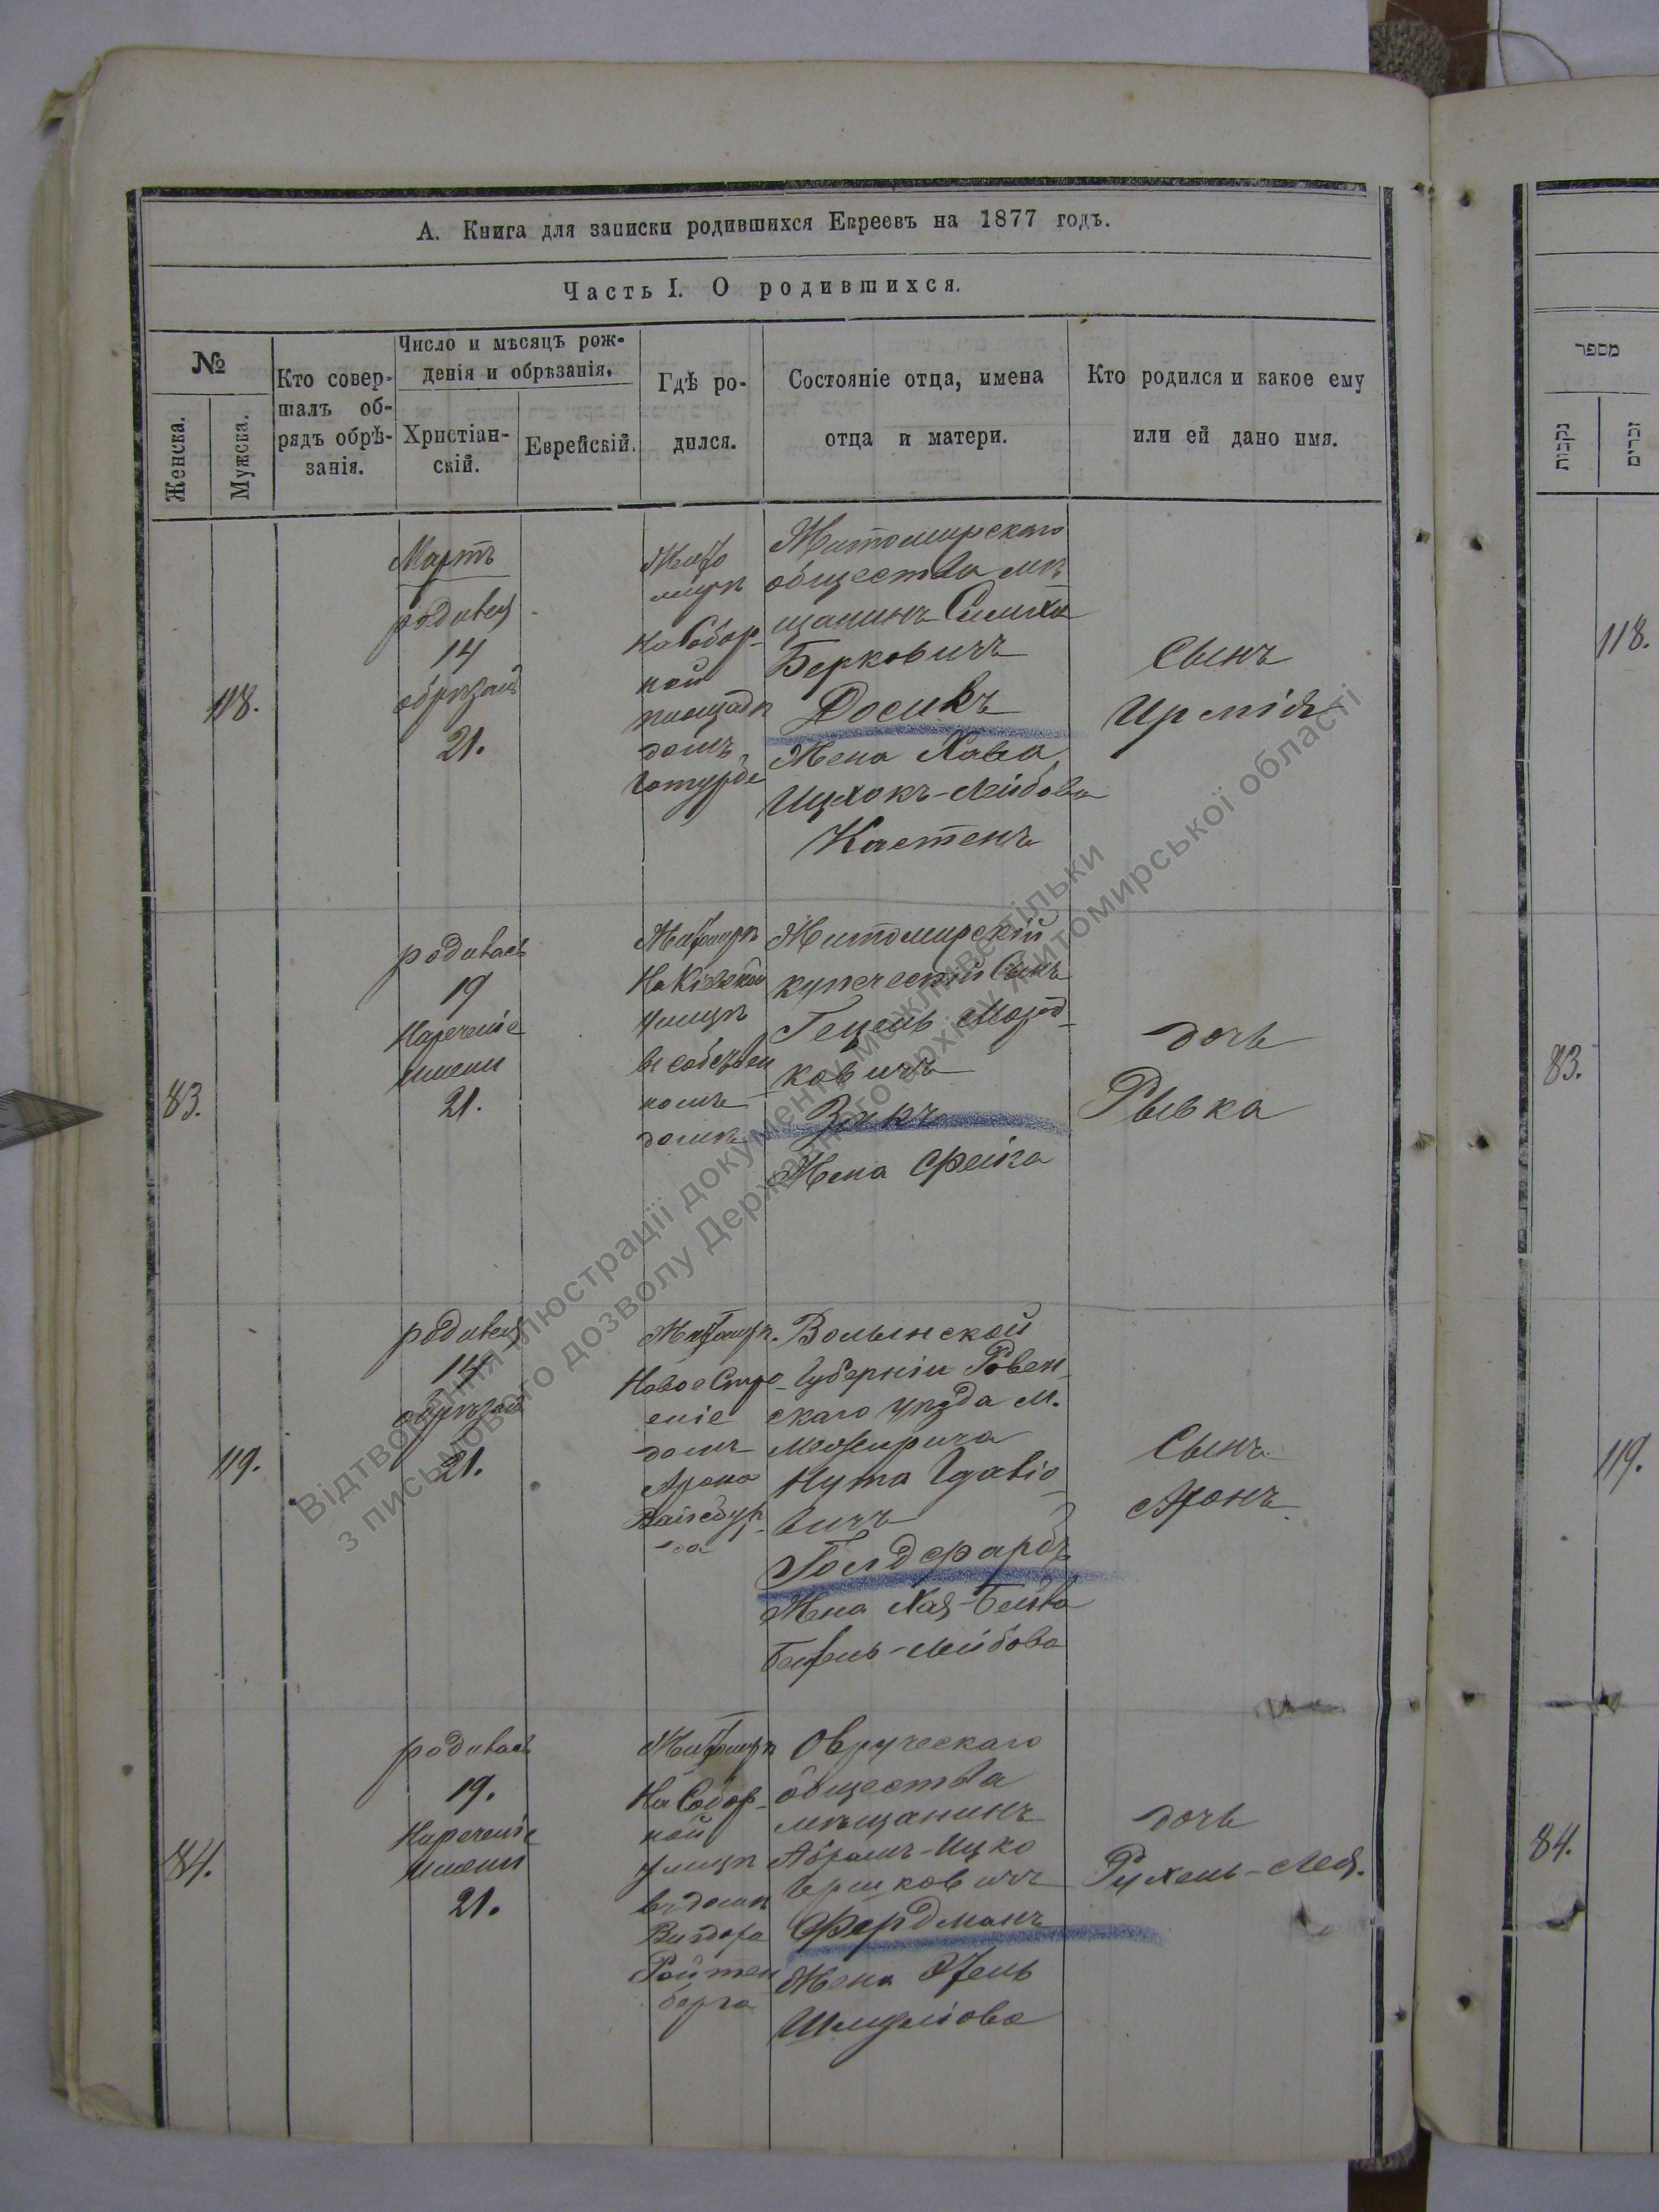 А. Книга для записки родившихся Евреевъ на 1877 годъ.
Часть I. О родившихся.
№
Женска.
Мужска.
Кто совер-
шалъ об-
рядъ обрѣ-
занія.
Число и мѣсяцъ рож-
денія и обрѣзанія.
Христіан-
скій.
Еврейскій.
Гдѣ ро-
дился.
Состояніе отца, имена
отца и матери.
Кто родился и какое ему
или ей дано имя.
118.
Мартъ
родився
14
обрѣзанъ
21.
Жито
мирѣ
На Собор-
ной
площадѣ
домъ
Житомирскаго
общества мѣ
щанинъ Симха
Берковичъ
Досикъ
Жена Хава
Ицхокъ-Лейбова
Кастенъ
Сынъ
Ирмія
83.
родилась
19
Нареченіе
имени
21.
Житомирѣ
На Кіевской
улицѣ
въ собствен
номъ
домѣ
Житомирскій
купеческій Сынъ
Гецель Морд-
ковичъ
Закъ
Жена Фейга
дочь
Рывка
119.
родився
14
обрѣзанъ
21.
Житомирѣ.
Новое Стро-
еніе
домъ
Арона
Вайсбур-
да
Волынской
Губерніи Ровен-
скаго уѣзда м.
Межирича
Нута
вичъ
Голдфарбъ
Жена Хая-Бейла
Лейбова
Сынъ
Аронъ
84.
родилась
19.
Нареченіе
имени
21.
Житомирѣ
На Собор-
ной
улицѣ
въ домѣ
Ройтен
берга
Овручскаго
общества
мѣщанинъ
Абрамъ-Ицко
Гершковичъ
Фердманъ
Жена
дочь
Рухель-Лея.
מספר
נקבות
זכרים
118.
83.
119.
84.
Відтворення ілюстрації документу можливе тільки
з письмового дозволу Державного архіву Житомирської області